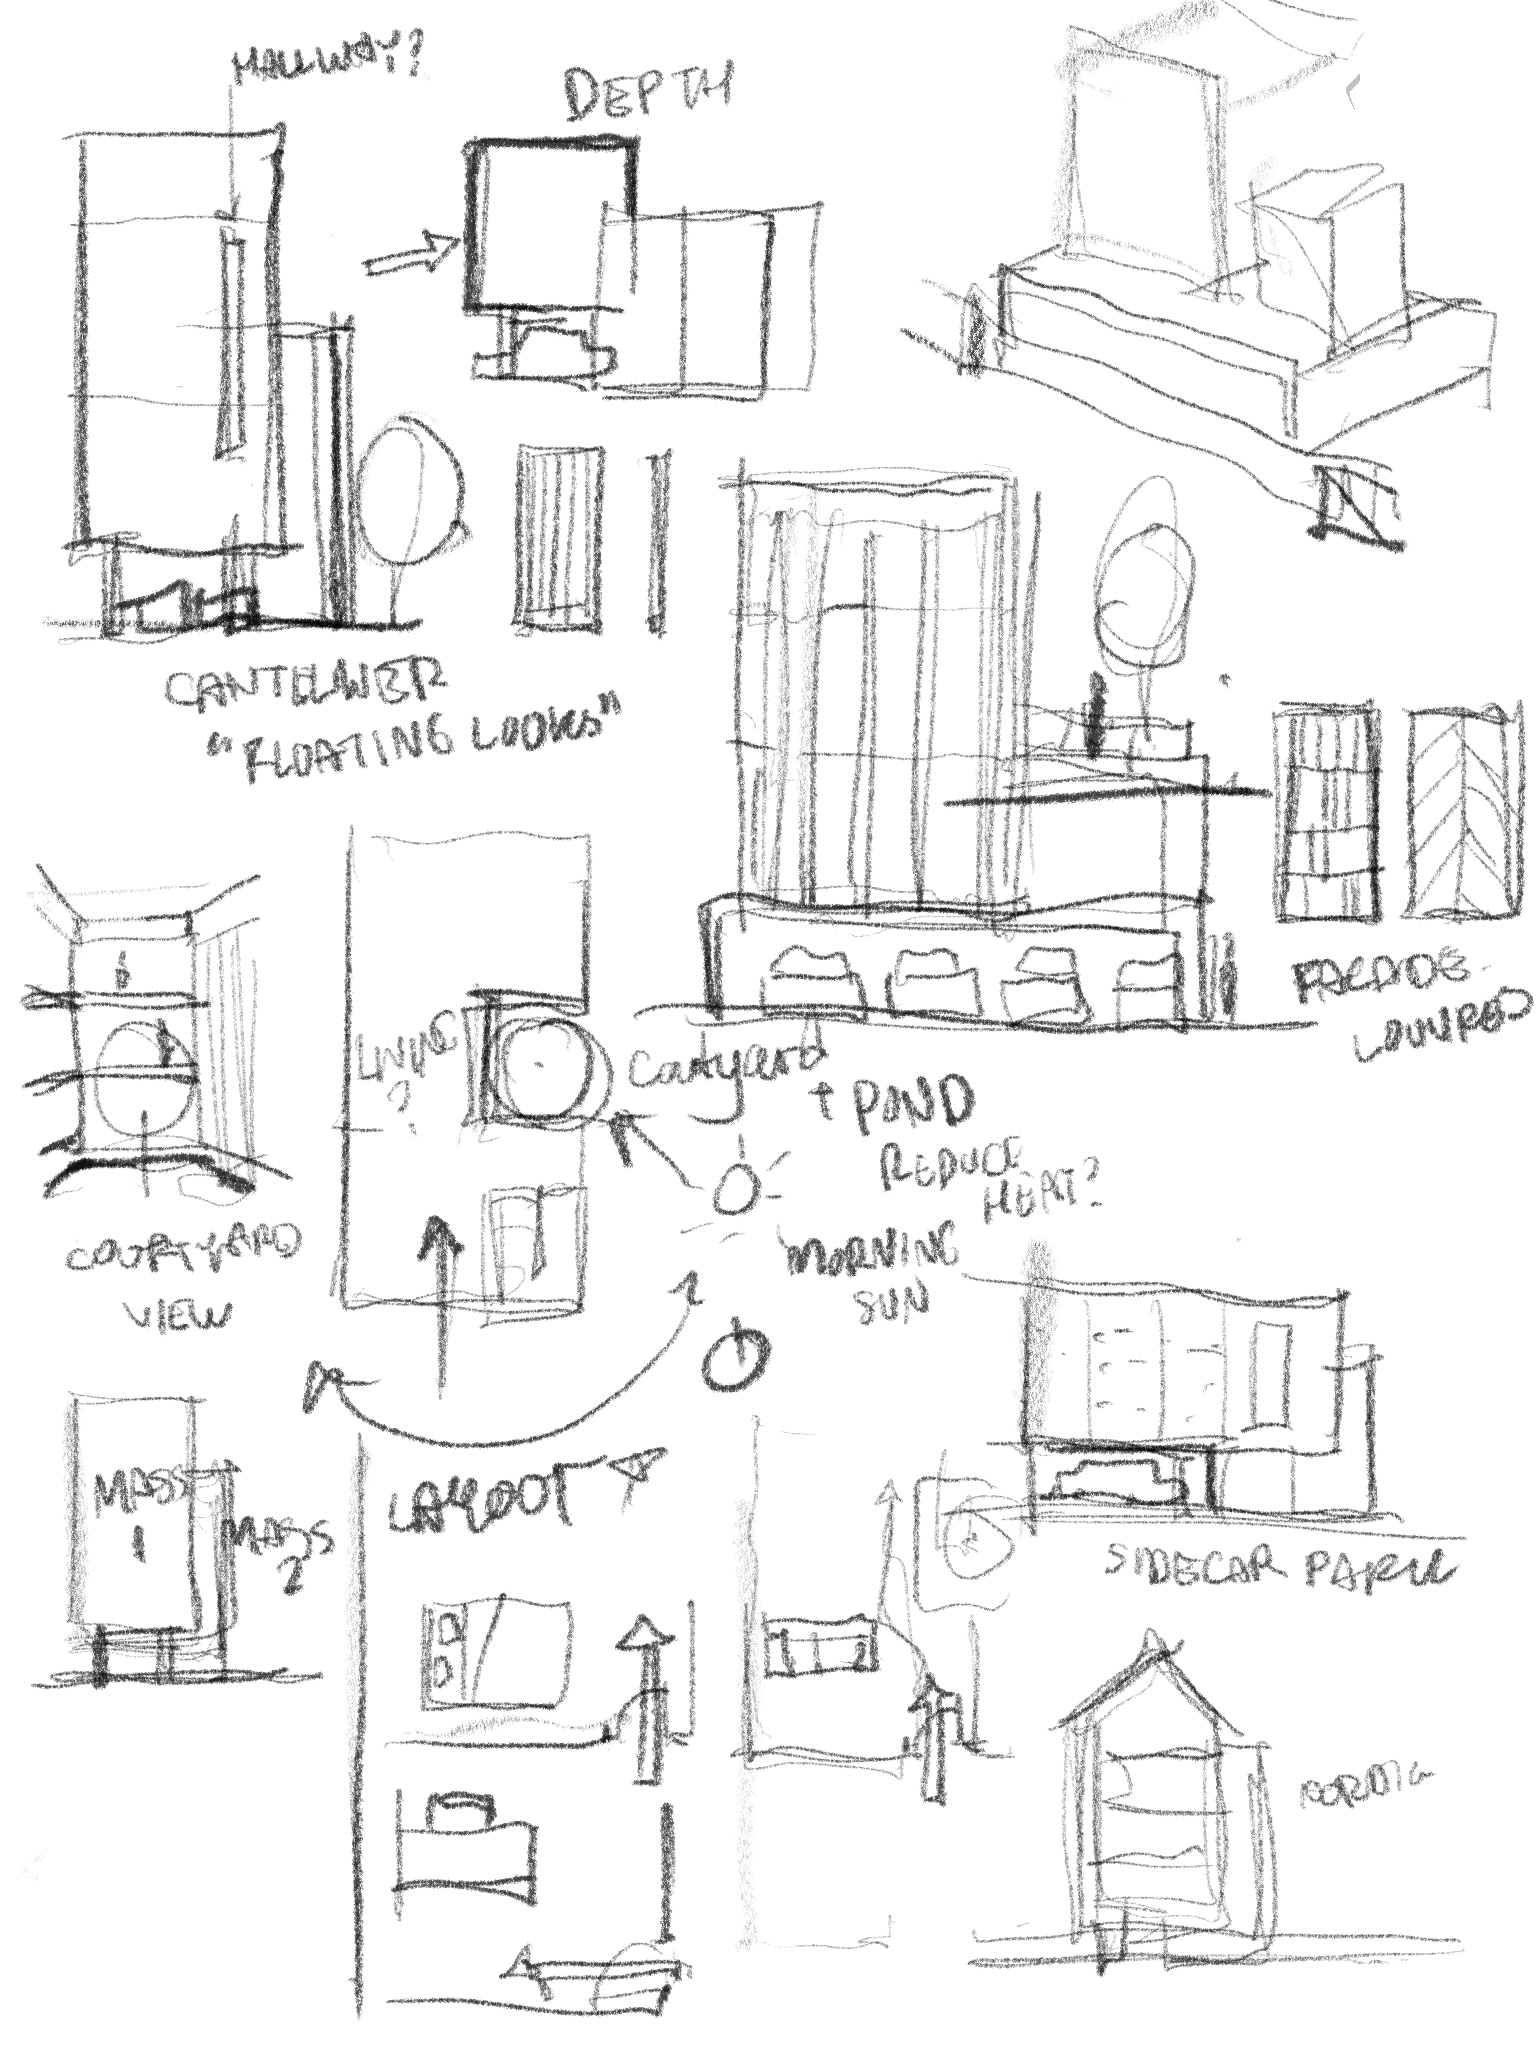 HALLWAY?
DEPTH
CANTELIVER
"FLOATING LOOKS"
FACADE -
LOUVRED
LIVING
?
Courtyard
+ POND
REDUCE
HEAT?
MORNING
SUN
COURTYARD
VIEW
MASS
1
MASS
2
LAYOUT
SIDECAR PARK
NORDIC